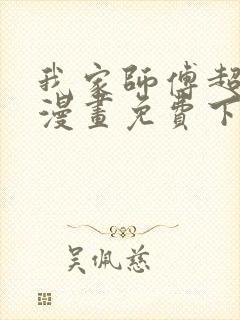 我家師傅超
漫畫免費下
吳佩慈